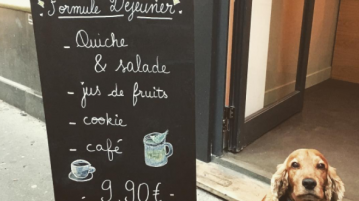 Formule Déjeuner
- Quiche
& salade
- jus de fruits
- cookie
- café
- 9,90€ -